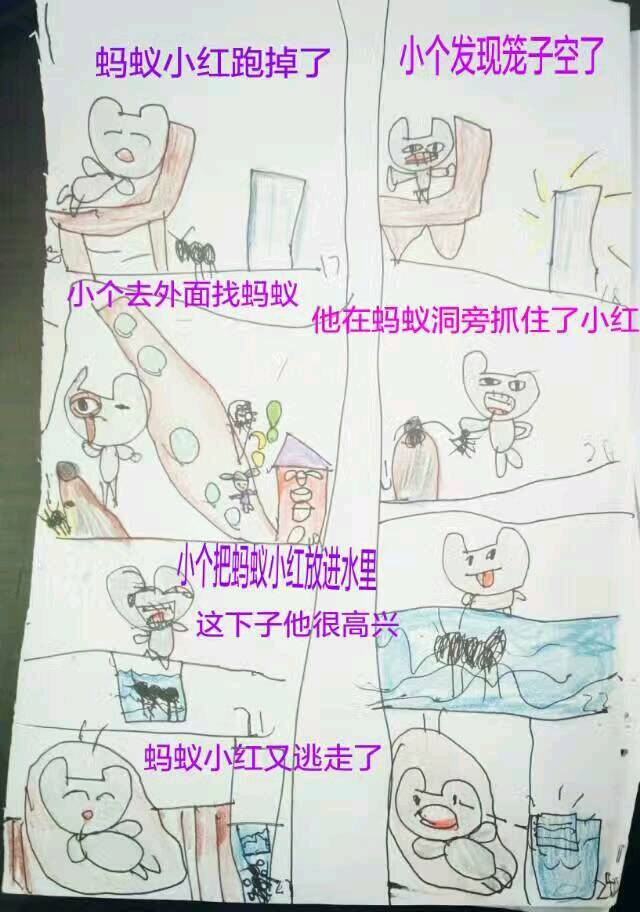 蚂蚁小红跑掉了
小个发现笼子空了
17
18
小个去外面找蚂蚁
他在蚂蚁洞旁抓住了小红
19
20
小个把蚂蚁小红放进水里
这下子他很高兴
21
22
蚂蚁小红又逃走了
23